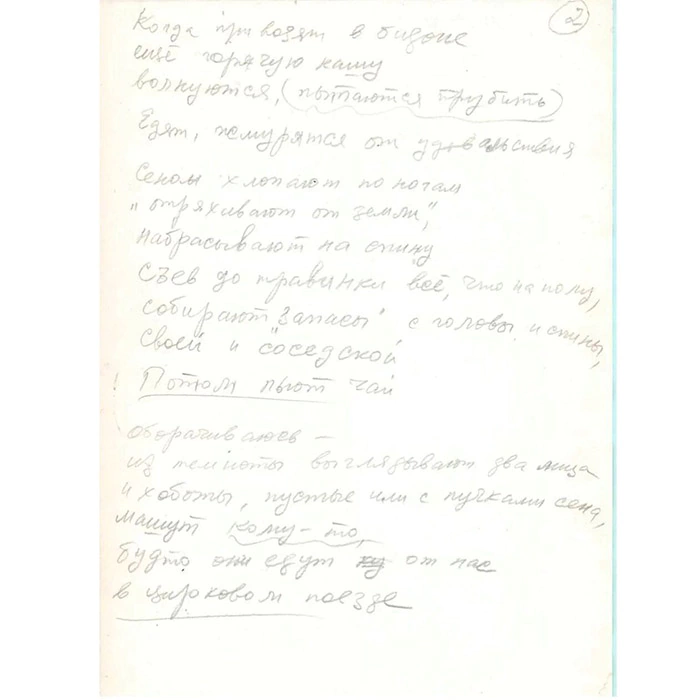 2
Когда привозят в бидоне
ещё горячую кашу
волнуются, (пытаются трубить)
Едят, жмурятся от удовольствия
Сеном хлопают по ногам
"отряхивают от земли",
набрасывают на спину
Съев до травинки всё, что на полу,
собирают "запасы" с головы и спины,
своей и "соседской
! Потом пьют чай
оборачиваюсь –
из темноты выглядывают два лица
и хоботы, пустые или с пучками сена,
машут кому-то,
будто они едут от нас
в цирковом поезде